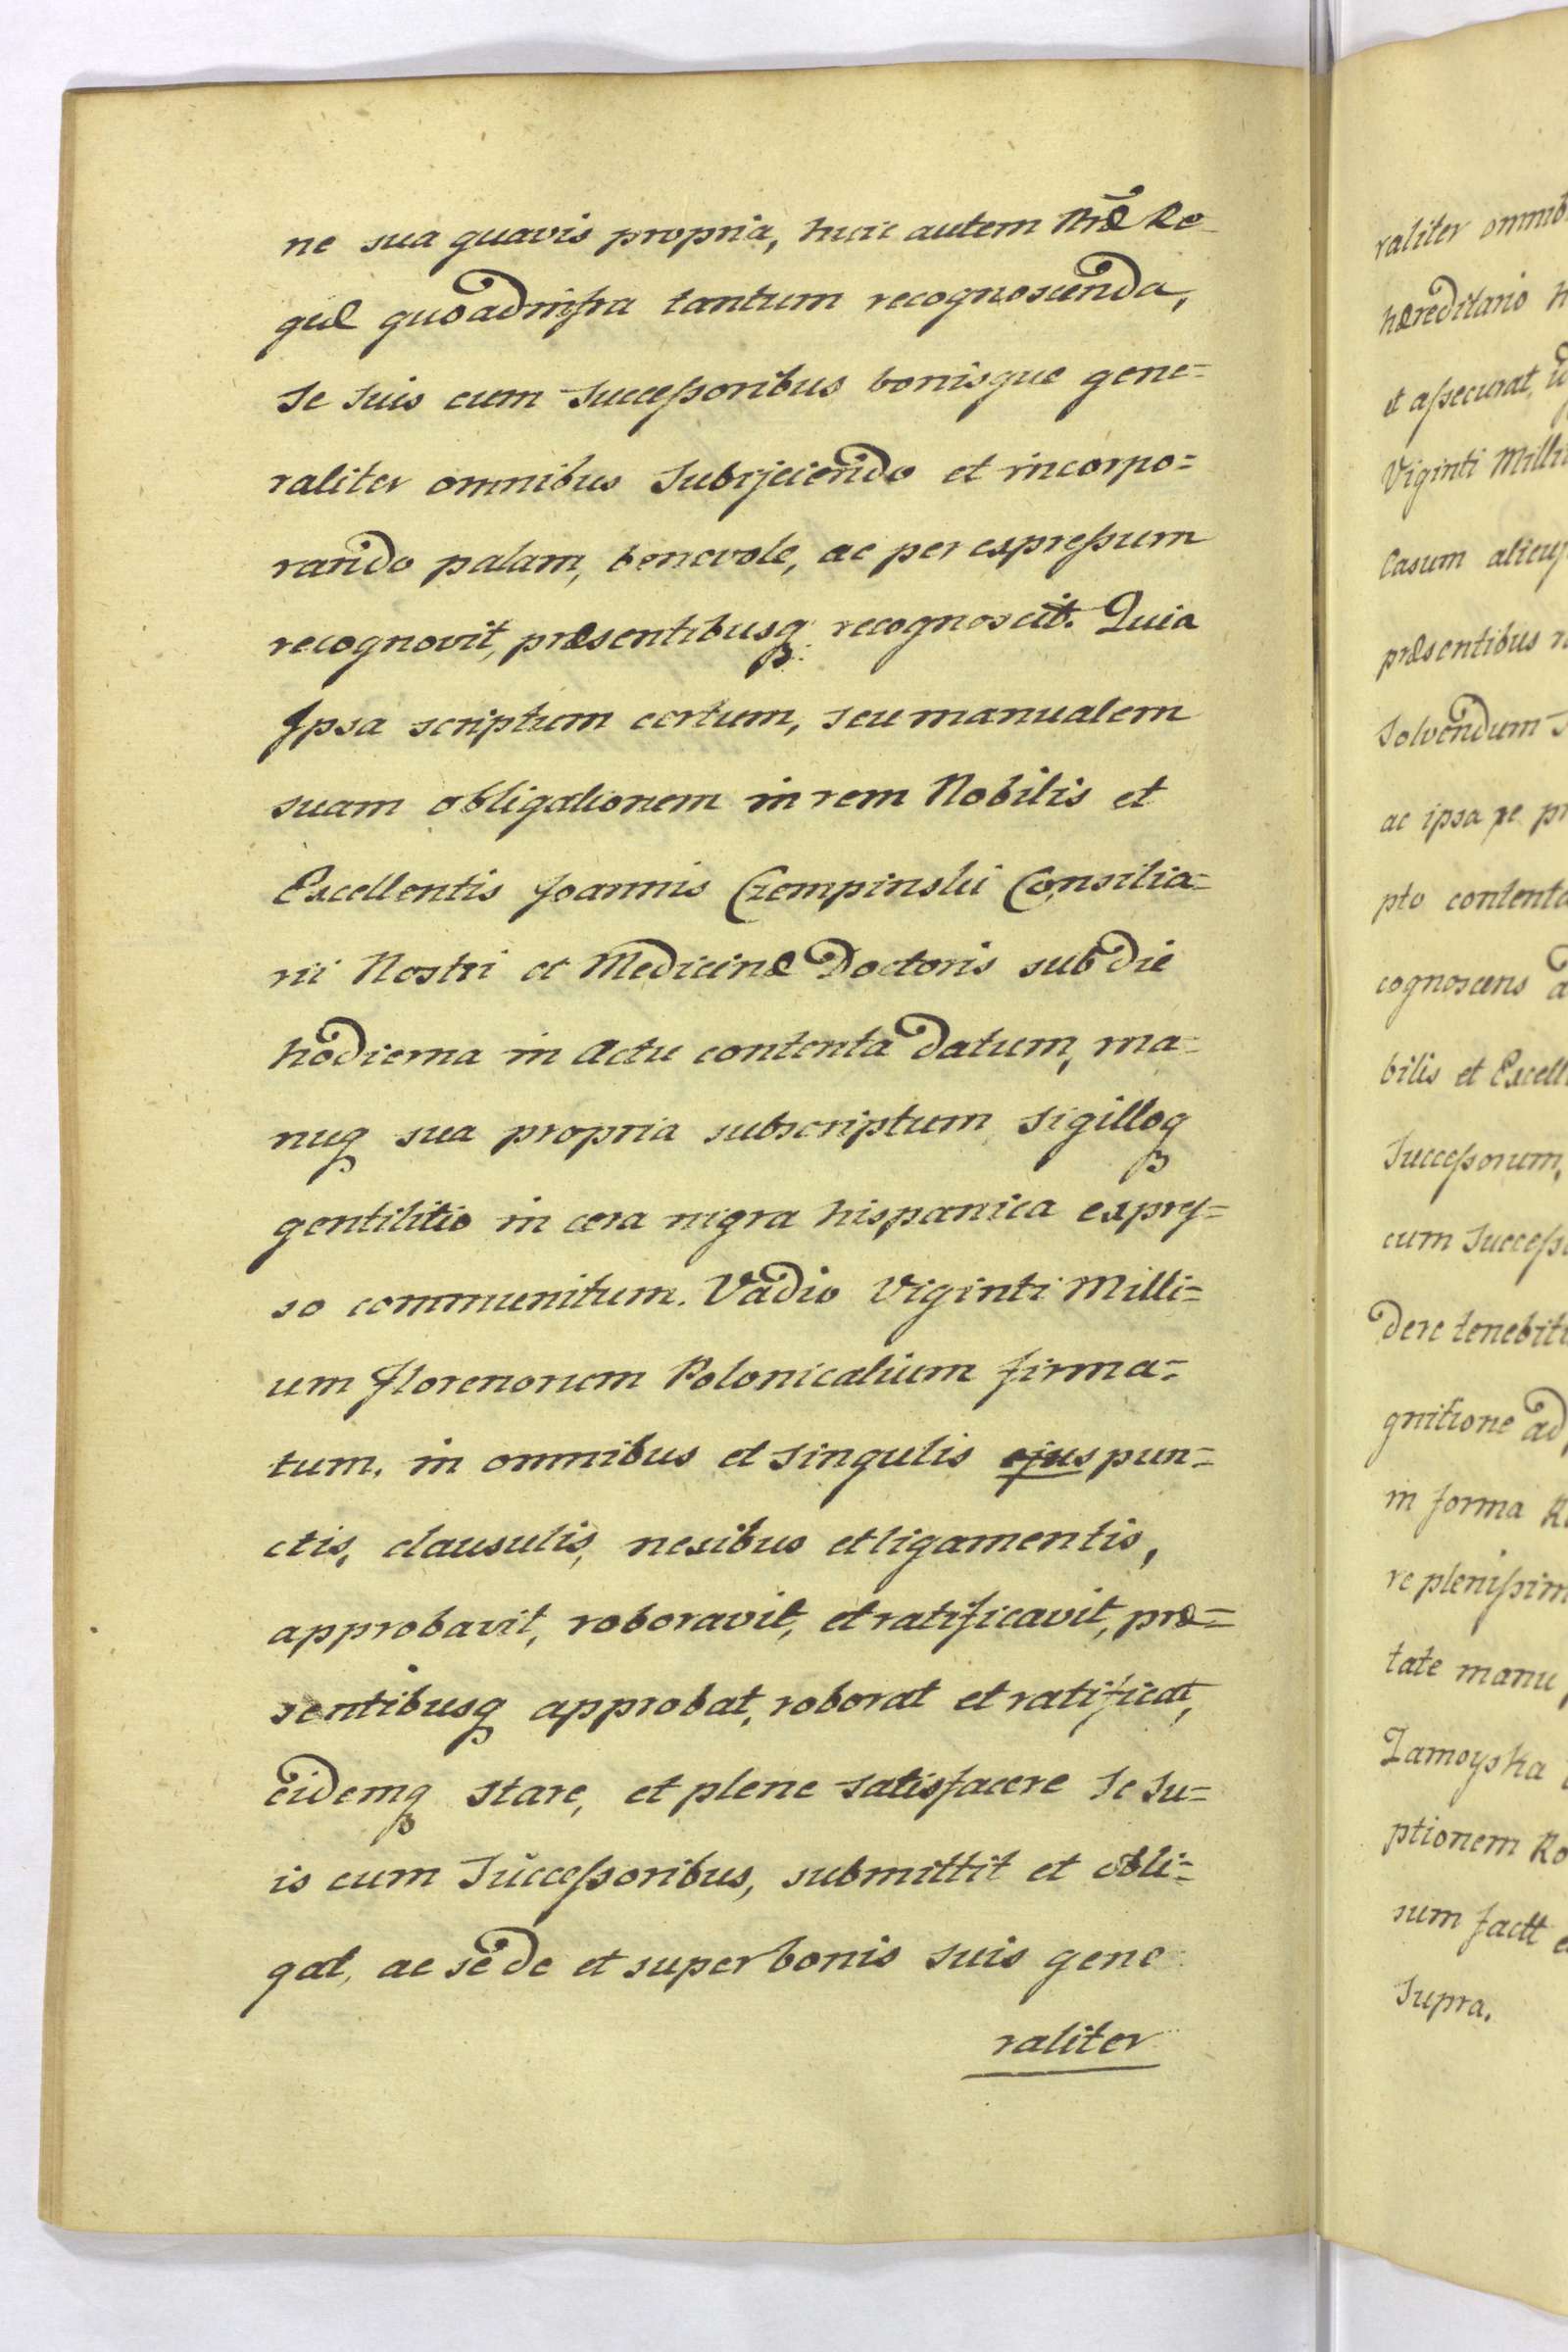 ne sua quavis propria, huic autem Nræ Re-
giæ quoad infra tantum recognoscenda,
Se Suis cum Successoribus bonisque gene=
raliter omnibus Subijciendo et incorpo=
rando palam, benevole, ac per expressum
recognovit, præsentibusq; recognoscit. Quia
Ipsa scriptum certum, seu manualem
suam obligationem in rem Nobilis et
Excellentis Joannis Czempinski Consilia=
rii Nostri et Medicinæ Doctoris sub die
hodierna in Actu contenta datum, ma=
nuq sua propria subscriptum, sigilloq
gentilitio in cera nigra hispanica expres=
so communitum. Vadio Viginti Milli=
um florenorum Polonicalium firma=
tum, in omnibus et Singulis ejus pun=
ctis, clausulis, nexibus et ligamentis,
approbavit, roboravit, et ratificavit, præ=
sentibusq approbat, roborat et ratificat,
eidemq stare, et plene satisfacere Se Su=
is cum Successoribus, submittit et obli=
gat, ac se de et super bonis suis gene
raliter
raliter omnib
hæreditario h
et assecurat,
Viginti Milli
Casum alicuj
præsentibus r
Solvendum S
ac ipsa re pr
pto contenta
cognoscens a
bilis et Excell
Successorum,
cum Successo
dere tenebit
gnitione ad
in forma R
re plenissim
tate manu
Zamoyska
ptionem Ro
sum factt e
Supra.